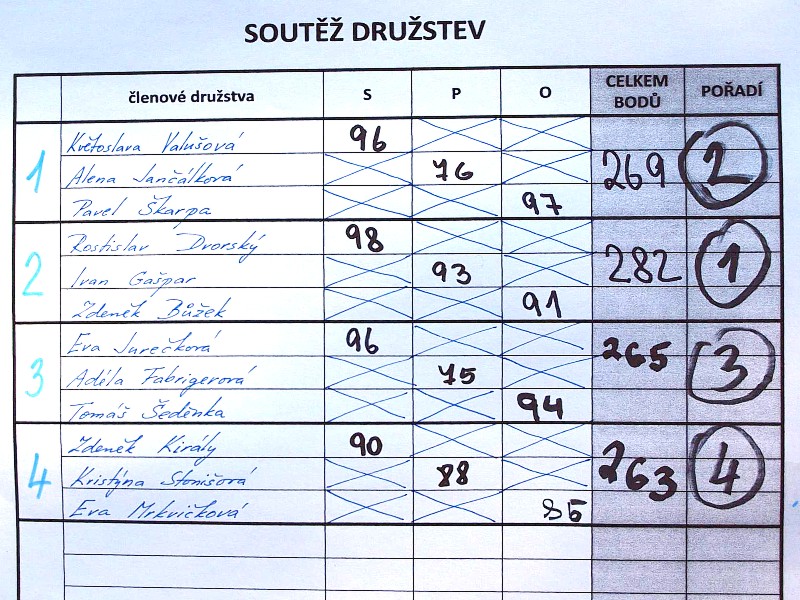 SOUTĚŽ DRUŽSTEV
členové družstva S P O CELKEM BODŮ POŘADÍ
1 Květoslava Valušová 96
Alena Jančálková 76 269 2
Pavel Škarpa 97
Rostislav Dvorský 98
2 Ivan Gašpar 93 282 1
Zdeněk Bůžek 91
Eva Jurečková 96
3 Adéla Fabrigerová 75 265 3
Tomáš Šeděnka 94
Zdeněk Király 90
4 Kristýna Stonišová 88 263 4
Eva Mrkvičková 85